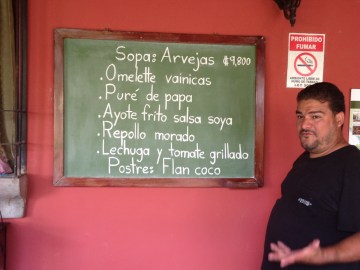 Sopa: Arvejas ₡9,800
. Omelette vainicas
. Puré de papa
. Ayote frito salsa soya
. Repollo morado
. Lechuga y tomate grillado
Postre: Flan coco
PROHIBIDO
FUMAR